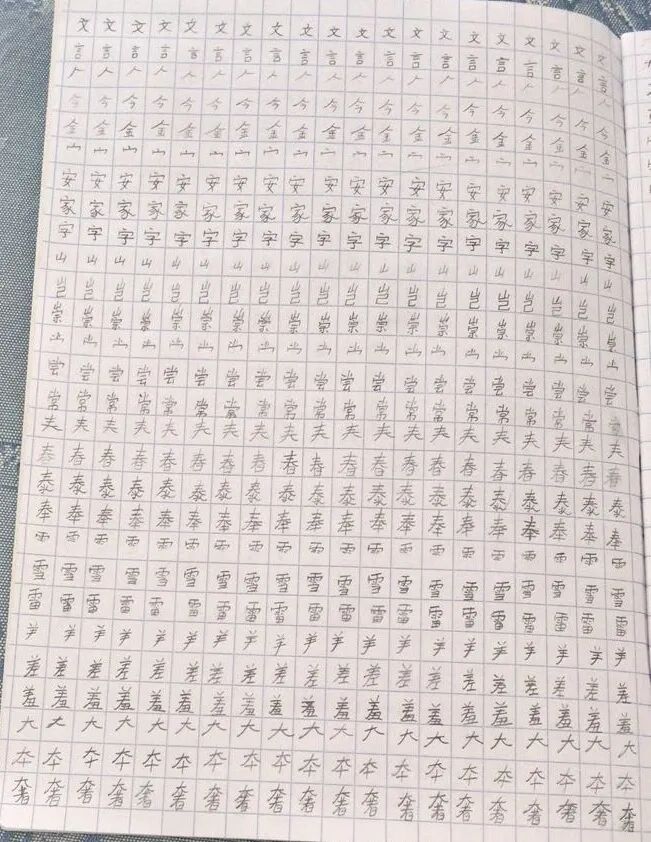 文文文文文文文文文文文文文文文文文文文文
言言言言言言言言言言言言言言言言言言言言
人人人人人人人人人人人人人人人人人人人人
今今今今今今今今今今今今今今今今今今今今
金金金金金金金金金金金金金金金金金金金金
宀宀宀宀宀宀宀宀宀宀宀宀宀宀宀宀宀宀宀宀
安安安安安安安安安安安安安安安安安安安安
家家家家家家家家家家家家家家家家家家家家
字字字字字字字字字字字字字字字字字字字字
山山山山山山山山山山山山山山山山山山山山
岂岂岂岂岂岂岂岂岂岂岂岂岂岂岂岂岂岂岂岂
崇崇崇崇崇崇崇崇崇崇崇崇崇崇崇崇崇崇崇崇
尝尝尝尝尝尝尝尝尝尝尝尝尝尝尝尝尝尝尝尝
常常常常常常常常常常常常常常常常常常常
春春春春春春春春春春春春春春春春春春春春
泰泰泰泰泰泰泰泰泰泰泰泰泰泰泰泰泰泰泰泰
奉奉奉奉奉奉奉奉奉奉奉奉奉奉奉奉奉奉奉奉
雨雨雨雨雨雨雨雨雨雨雨雨雨雨雨雨雨雨雨雨
雪雪雪雪雪雪雪雪雪雪雪雪雪雪雪雪雪雪雪雪
雷雷雷雷雷雷雷雷雷雷雷雷雷雷雷雷雷雷雷雷
羊羊羊羊羊羊羊羊羊羊羊羊羊羊羊羊羊羊羊羊
差差差差差差差差差差差差差差差差差差差差
羞羞羞羞羞羞羞羞羞羞羞羞羞羞羞羞羞羞羞羞
大大大大大大大大大大大大大大大大大大大大
夲夲夲夲夲夲夲夲夲夲夲夲夲夲夲夲夲夲夲夲
奢奢奢奢奢奢奢奢奢奢奢奢奢奢奢奢奢奢奢奢